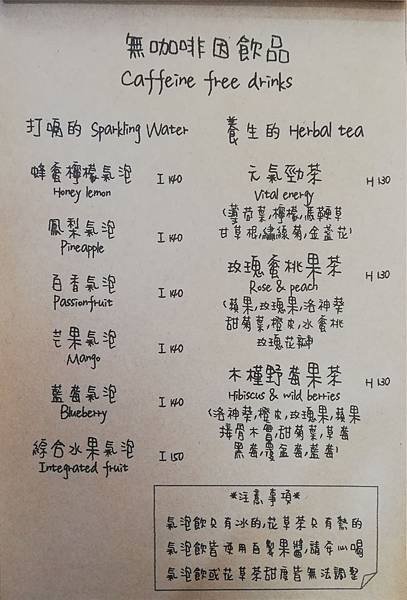 無咖啡因飲品
Caffeine free drinks
打嗝的 Sparkling Water
蜂蜜檸檬氣泡 I 140
Honey lemon
鳳梨氣泡 I 140
Pineapple
百香氣泡 I 140
Passionfruit
芒果氣泡 I 140
Mango
藍莓氣泡 I 140
Blueberry
綜合水果氣泡 I 150
Integrated fruit
養生的 Herbal tea
元氣勁茶 H 130
Vital energy
(薄荷葉,檸檬,馬鞭草
甘草根,繡線菊,金盞花)
玫瑰蜜桃果茶 H 130
Rose & peach
(蘋果,玫瑰果,洛神葵
甜菊葉,橙皮,水蜜桃
玫瑰花瓣
木槿野莓果茶 H 130
Hibiscus & wild berries
(洛神葵,橙皮,玫瑰果,蘋果
接骨木實,甜菊葉,草莓
黑莓,覆盆莓,藍莓)
*注意事項*
氣泡飲只有冰的,花草茶只有熱的
氣泡飲皆使用自製果醬,請安心喝
氣泡飲或花草茶甜度皆無法調整